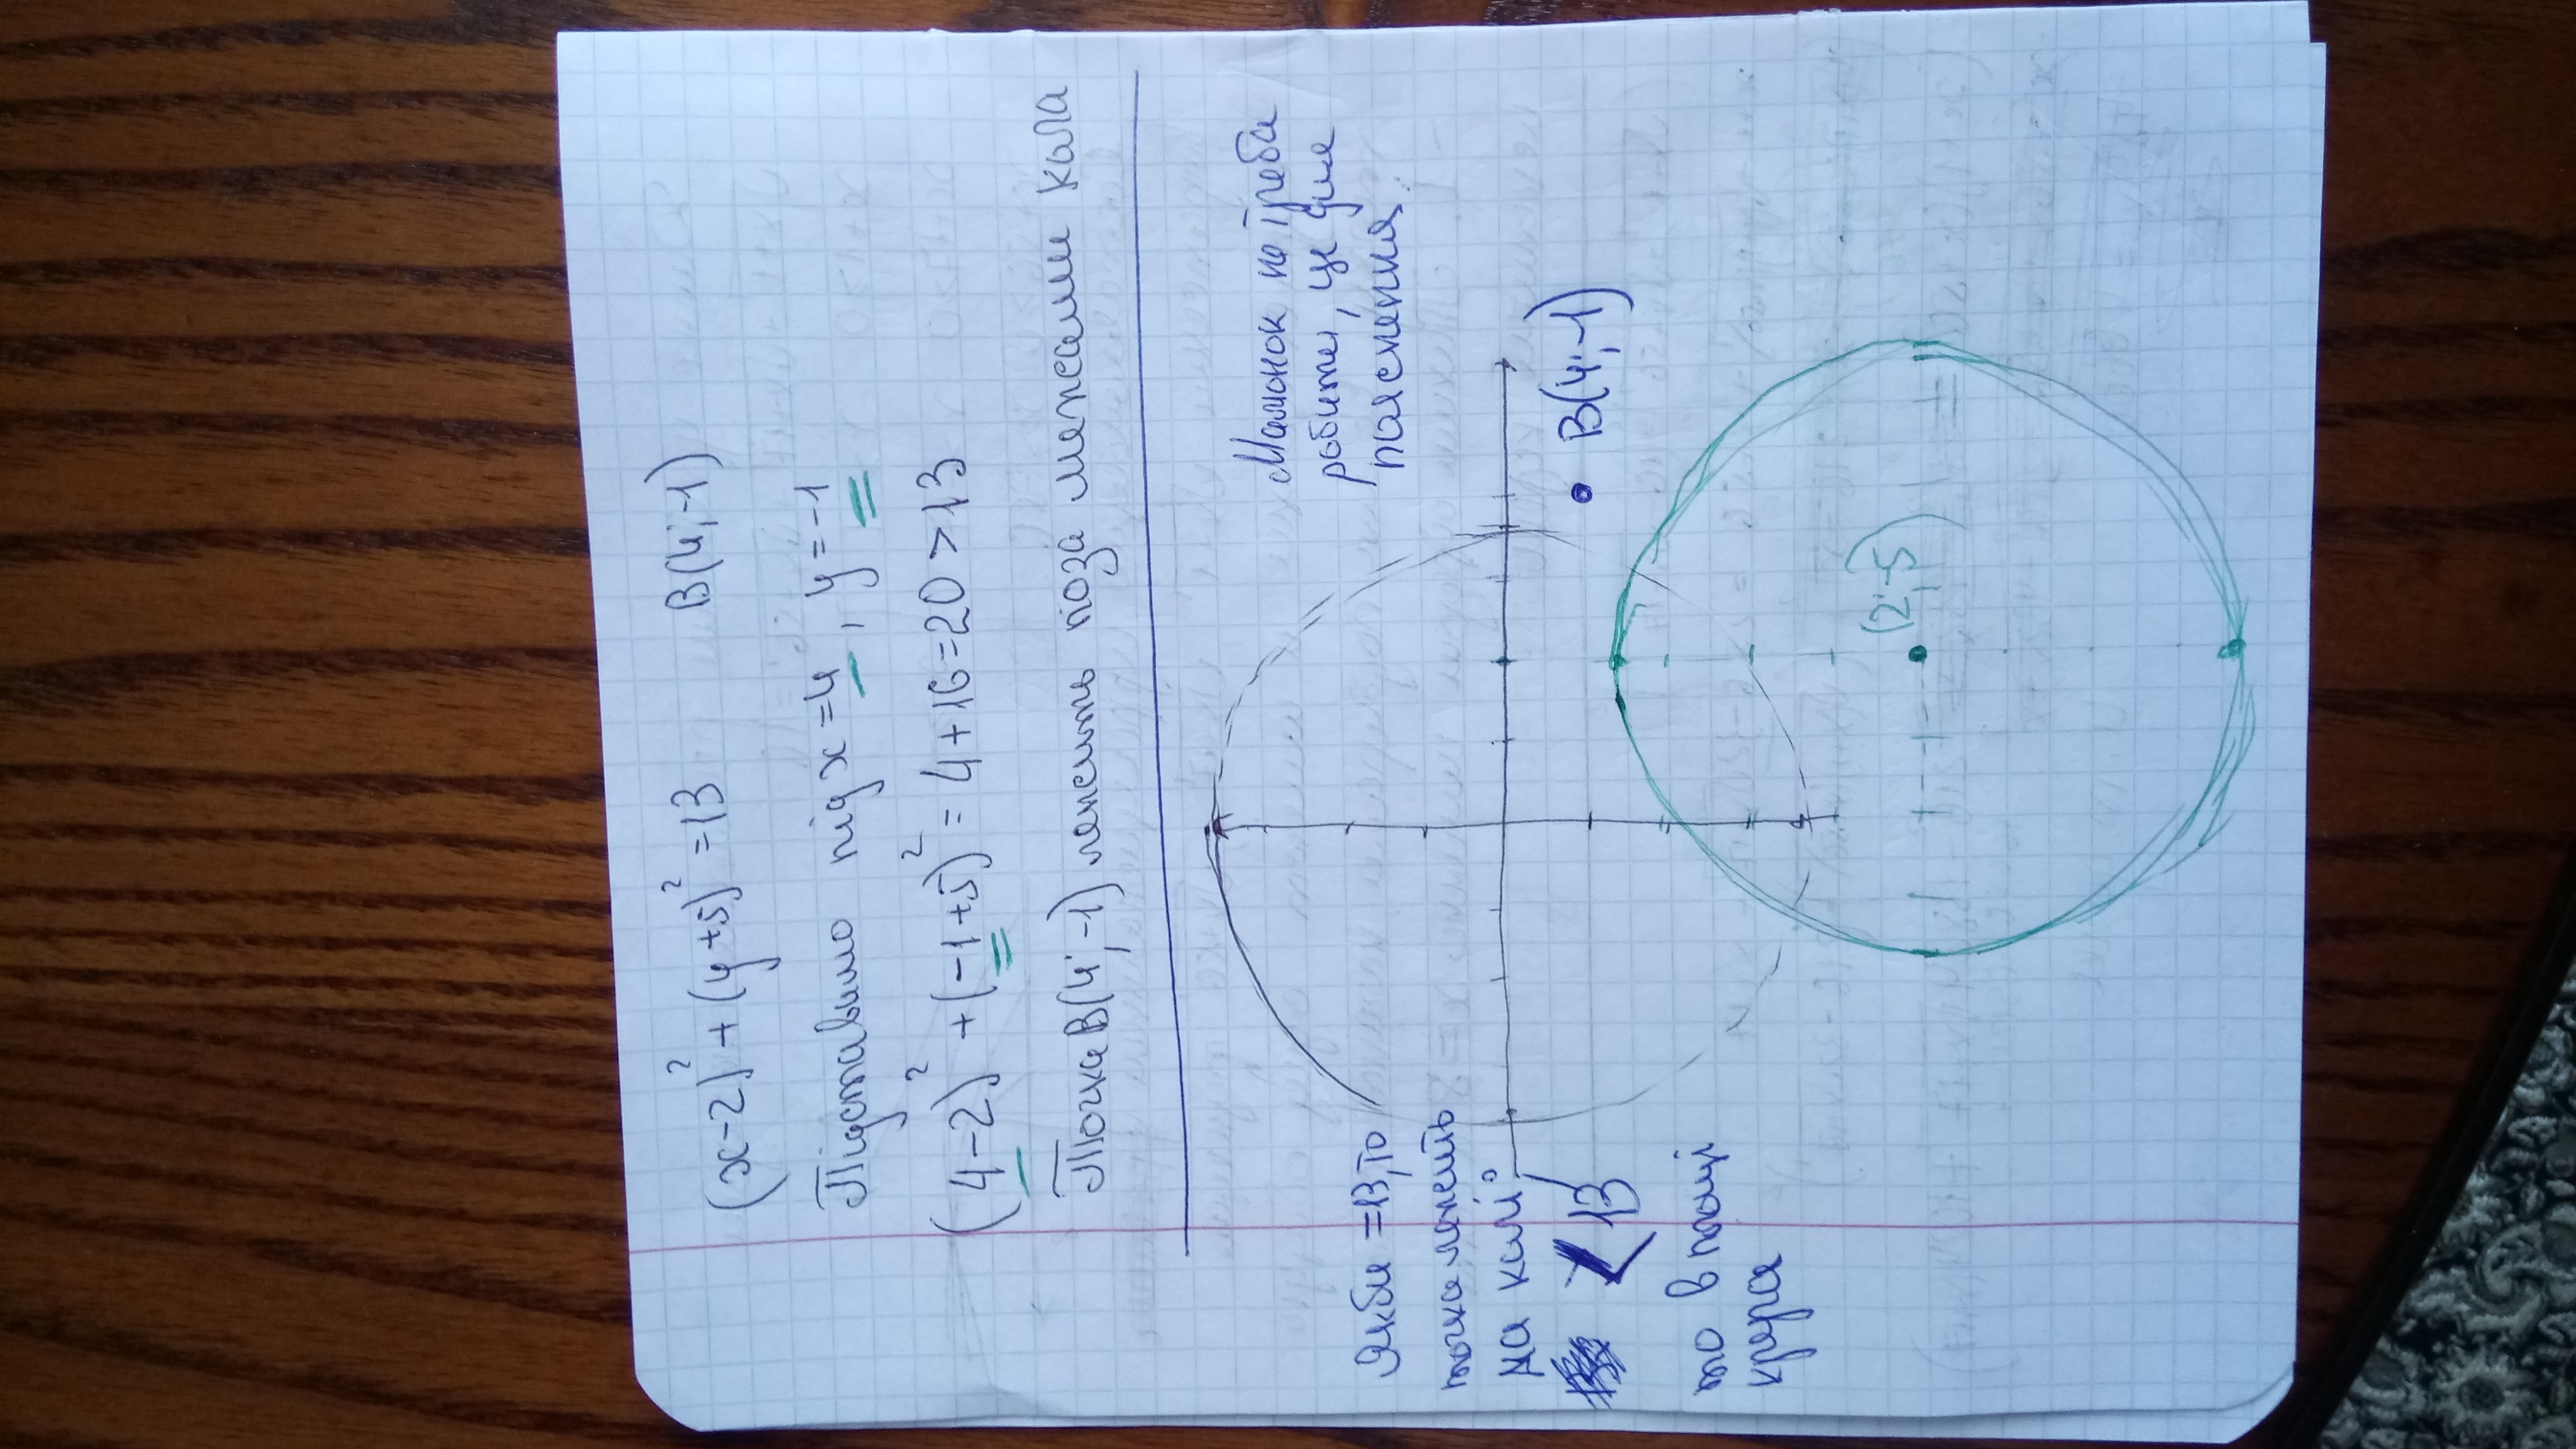 (x-2)² + (y+5)² = 13 B(4;-1)
Підставимо під x=4, y=-1
(4-2)² + (-1+5)² = 4+16=20>13
Точка B(4;-1) лежить поза межами кола
Малюнок не треба
робити, це для
пояснення.
B(4;-1)
(2;-5)
Якби =13, то
точка лежить
на колі
<13
то в площі
круга